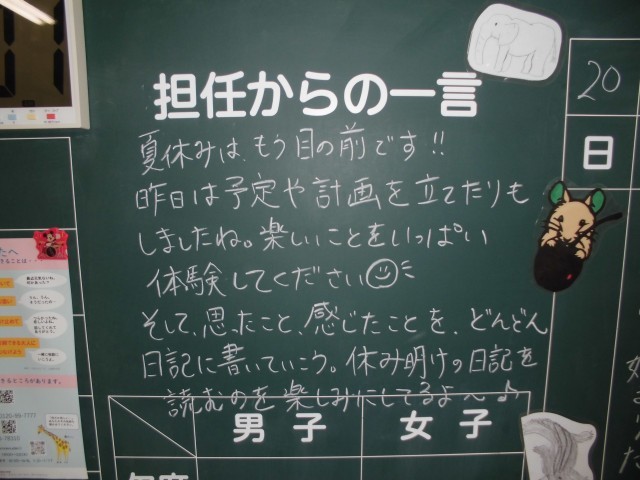 担任からの一言
夏休みは、もう目の前です!!
昨日は予定や計画を立てたりも
しましたね。楽しいことをいっぱい
体験してください
そして、思ったこと、感じたことを、どんどん
日記に書いていこう。休み明けの日記を
読むのを楽しみにしてるよ〜♪
男子
女子
20
日